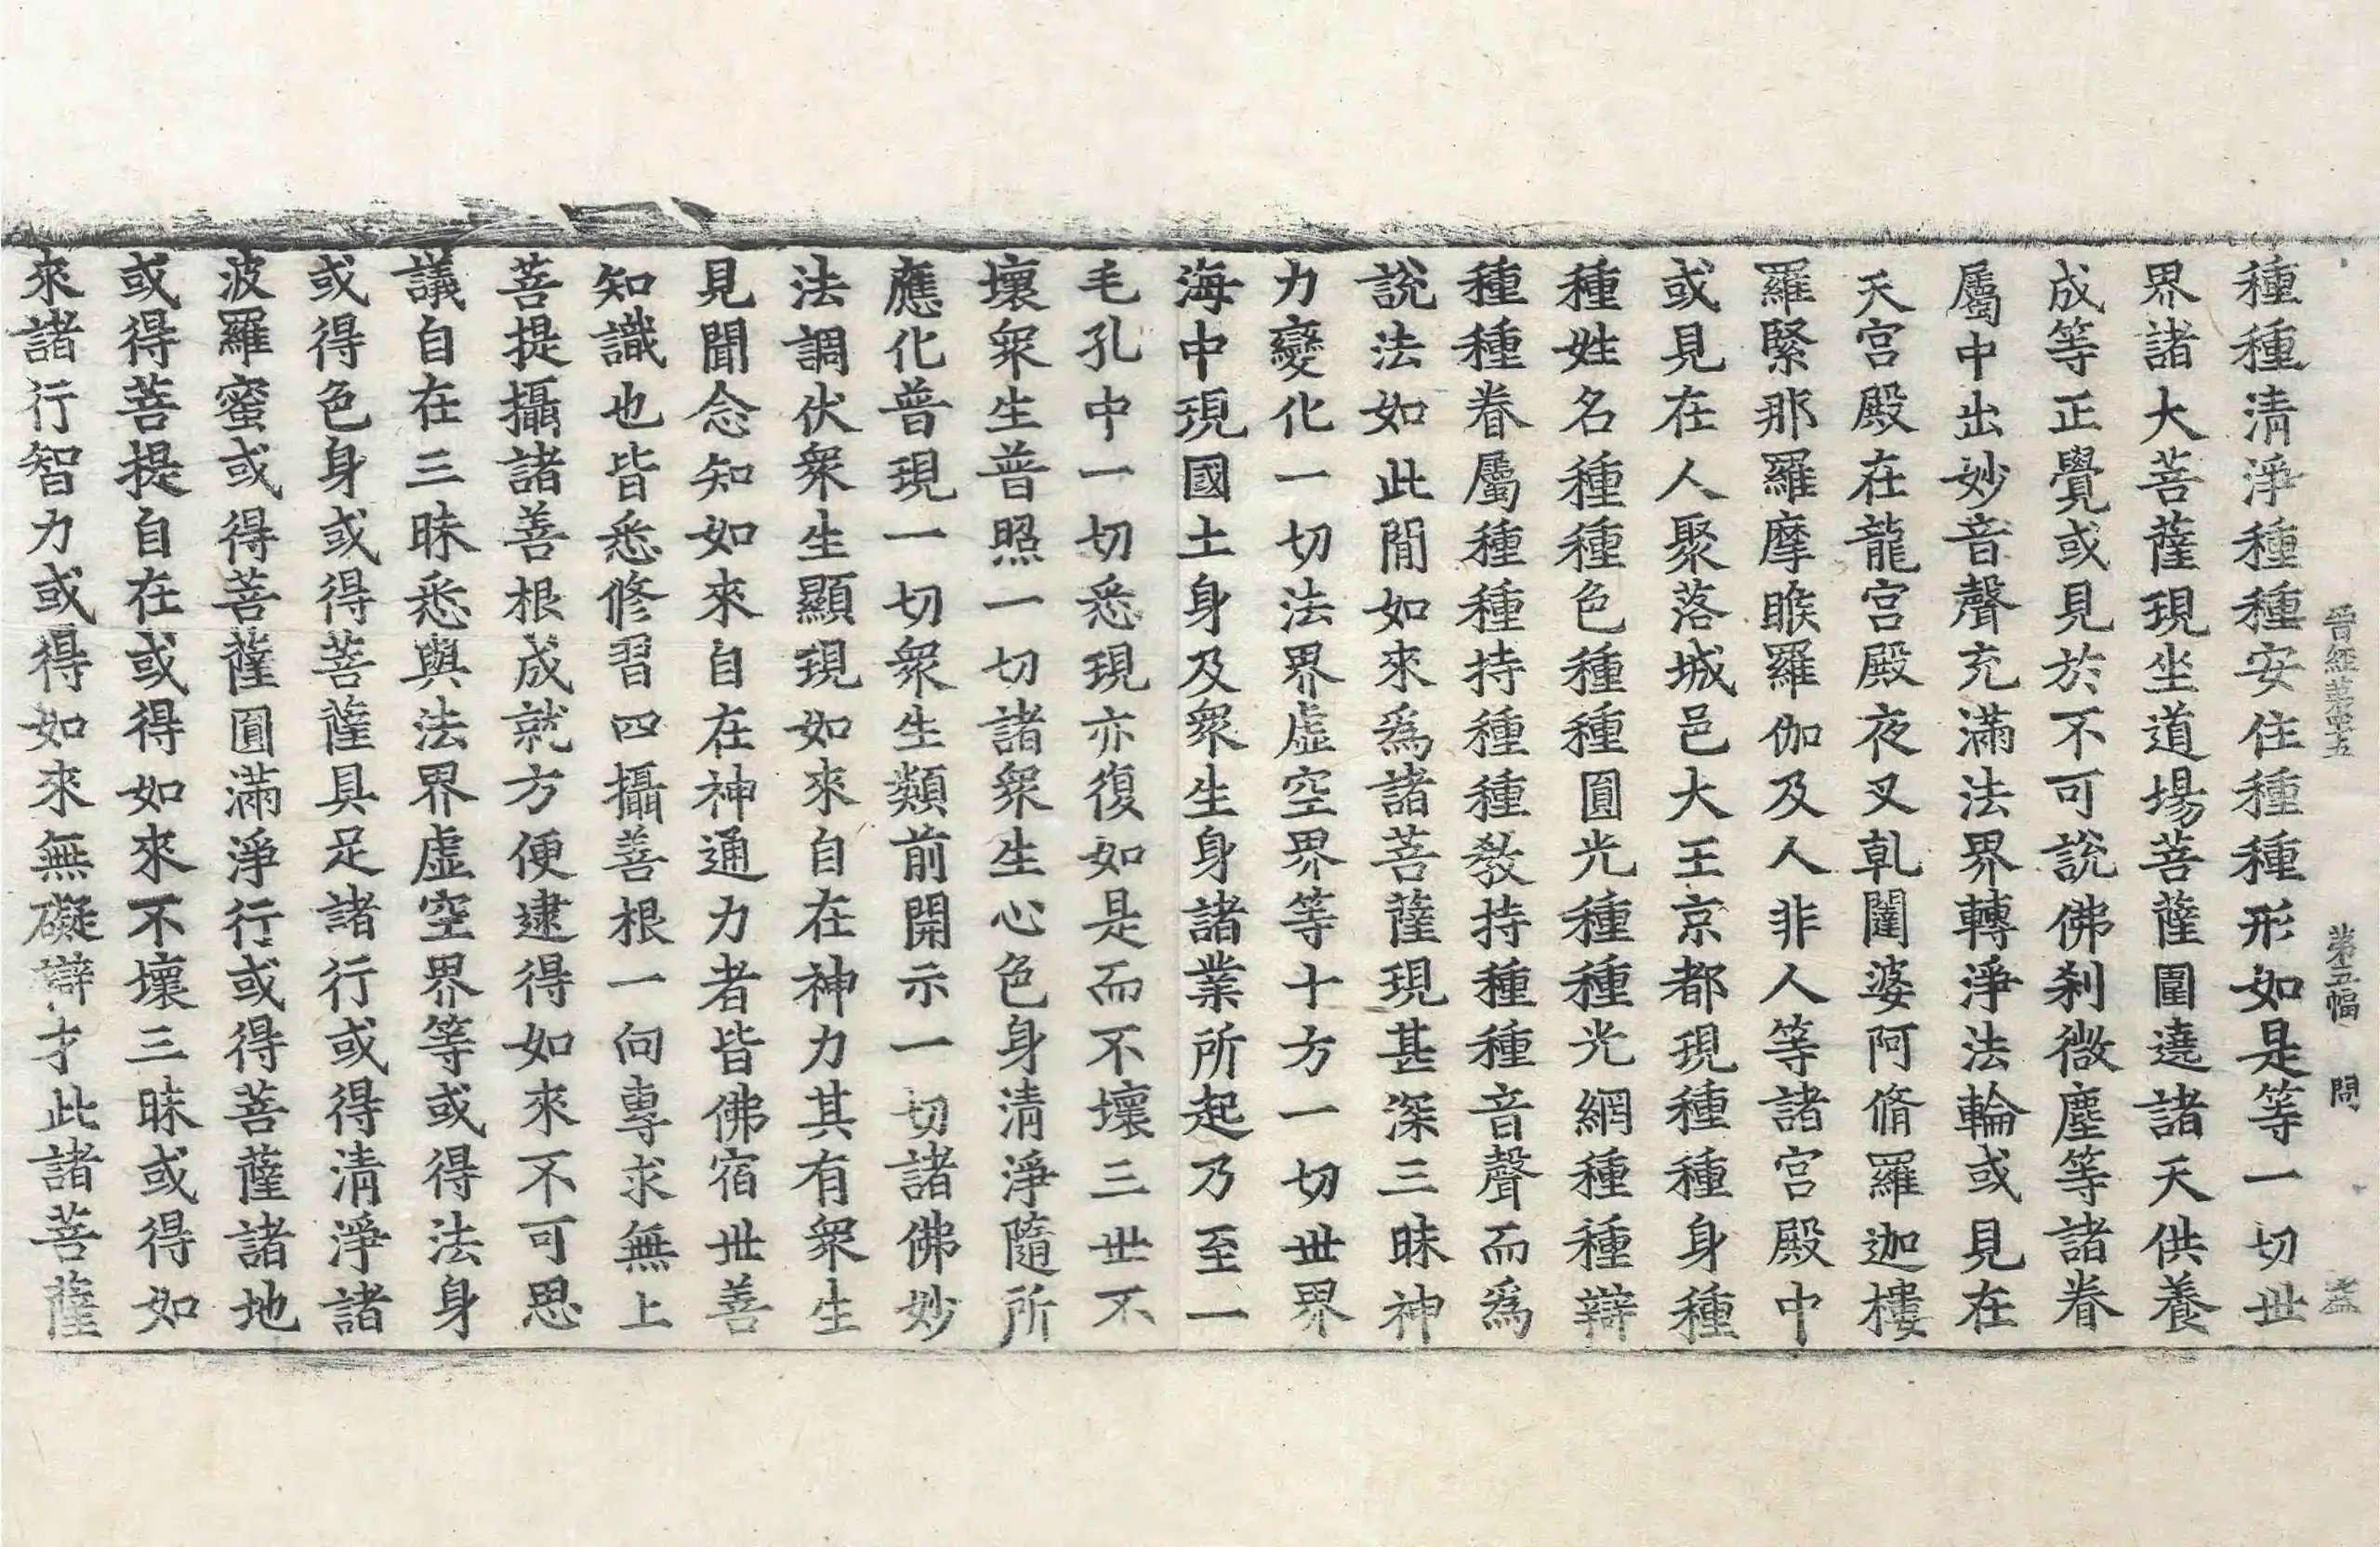 晋經第四十五 第五幅 問 盖
種種清淨種種安住種種形如是等一切世
界諸大菩薩現坐道場菩薩圍遶諸天供養
成等正覺或見於不可說佛刹微塵等諸眷
屬中出妙音聲充滿法界轉淨法輪或見在
天宮殿在龍宮殿夜叉乹闥婆阿脩羅迦樓
羅緊那羅摩睺羅伽及人非人等諸宮殿中
或見在人聚落城邑大王京都現種種身種
種姓名種種色種種圓光種種光網種種辯
種種眷屬種種持種種教持種種音聲而爲
說法如此閒如來爲諸菩薩現甚深三昧神
力變化一切法界虛空界等十方一切世界
海中現國土身及衆生身諸業所起乃至一
毛孔中一切悉現亦復如是而不壞三世不
壞衆生普照一切諸衆生心色身清淨隨所
應化普現一切衆生類前開示一切諸佛妙
法調伏衆生顯現如來自在神力其有衆生
見聞念知如來自在神通力者皆佛宿世善
知識也皆悉修習四攝善根一向專求無上
菩提攝諸善根成就方便逮得如來不可思
議自在三昧悉與法界虛空界等或得法身
或得色身或得菩薩具足諸行或得清淨諸
波羅蜜或得菩薩圓滿淨行或得菩薩諸地
或得菩提自在或得如來不壞三昧或得如
來諸行智力或得如來無礙辯才此諸菩薩